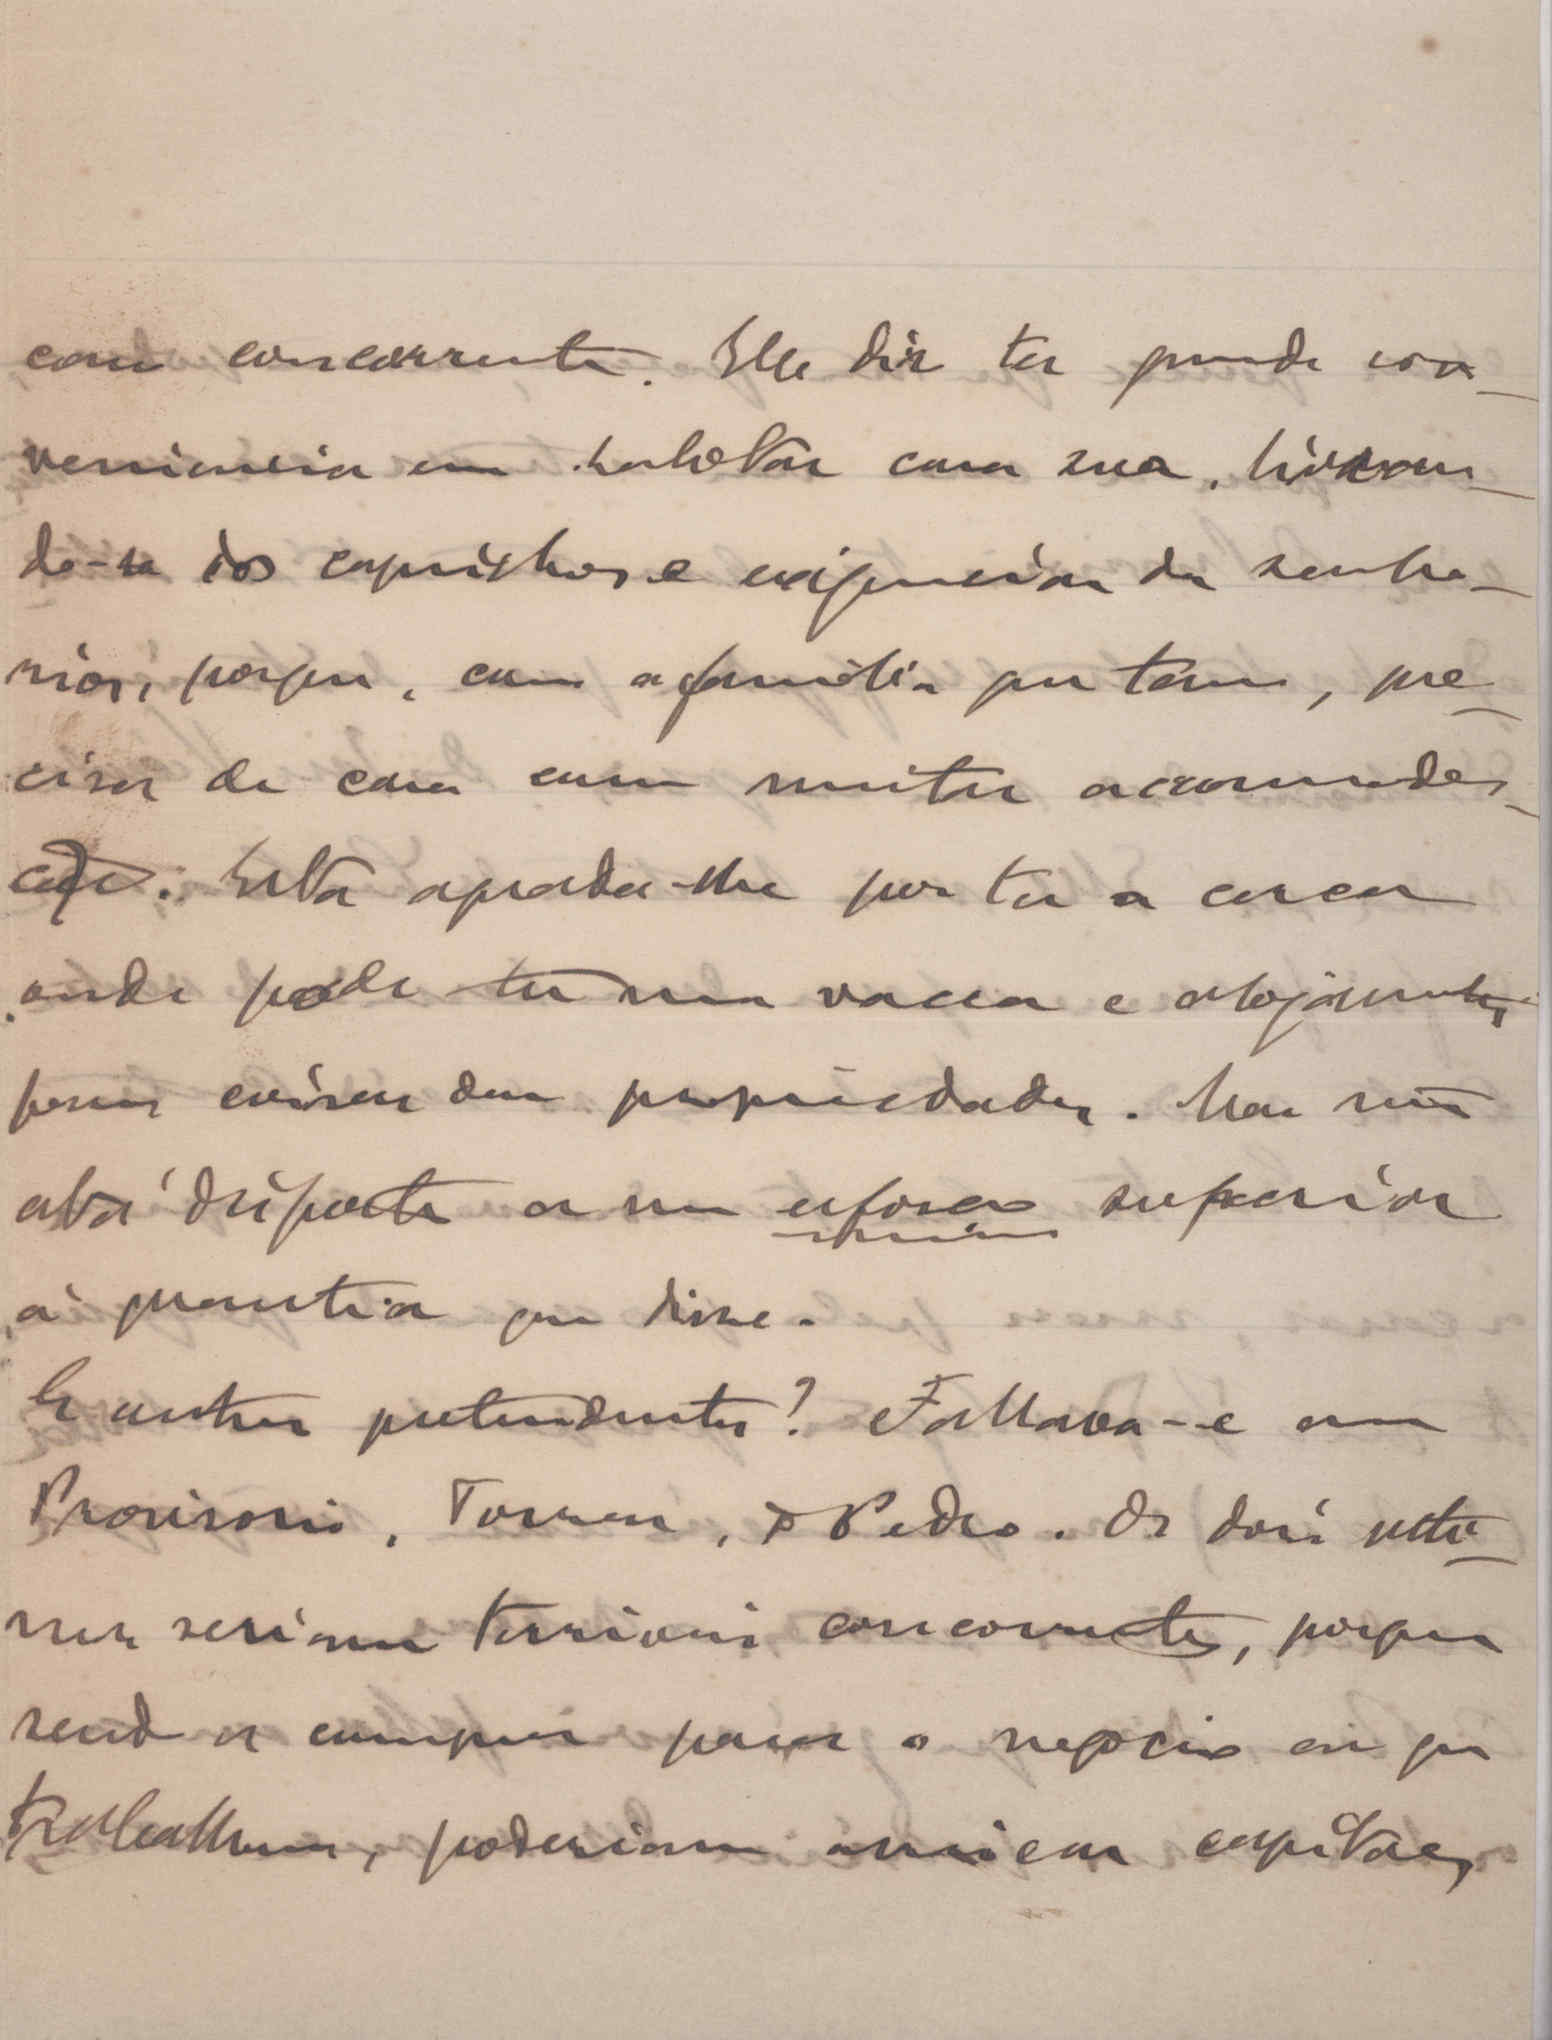 com concorrente. Elle diz ter grande con-
veniencia em habitar casa sua, livran-
do-se dos caprichos e exigencias de senho-
rios, porque, com a familia que tem, pre-
cisa de casa com muitas accommoda-
ções. Esta agrada-lhe por ter a cerca
onde póde ter uma vacca e alojamentos
para coisas das propriedades. Mas não
está disposto a um esforço superior
á quantia que disse.
E outros pretendentes? Fallava-se em
Provisorio, Torres, D. Pedro. Os dois ulti-
mos seriam terriveis concorrentes, porque
sendo a compra para o negocio em que
trabalham, poderiam arriscar capitaes,